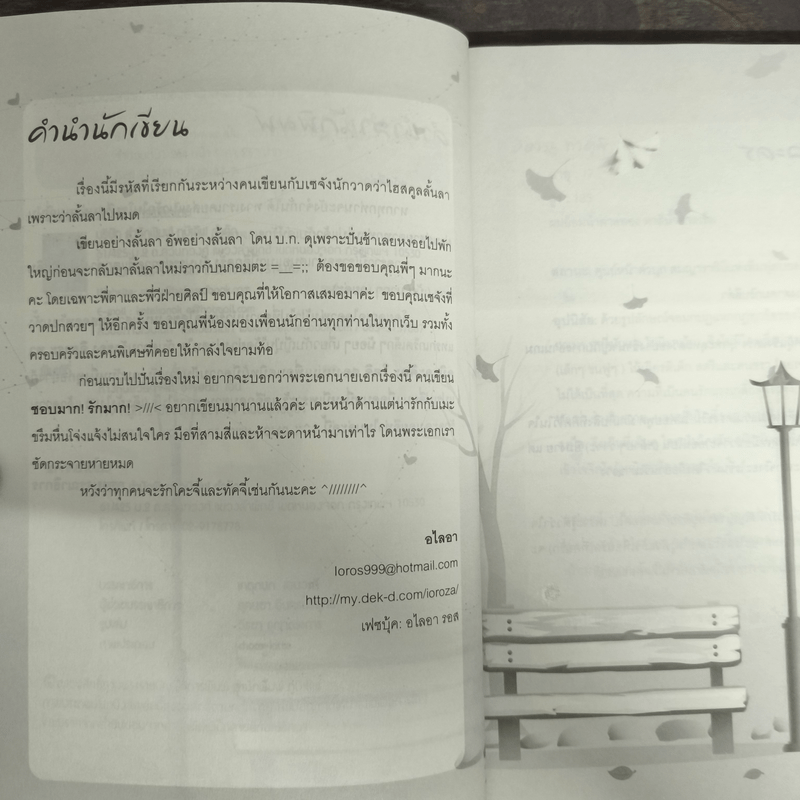 คำนำนักเขียน
เรื่องนี้มีรหัสที่เรียกกันระหว่างคนเขียนกับเซจังนักวาดว่าไฮสคูลลั้นลา
เพราะว่าลั้นลาไปหมด
เขียนอย่างลั้นลา อัพอย่างลั้นลา โดน บ.ก. ดุเพราะปั่นช้าเลยหงอยไปพัก
ใหญ่ก่อนจะกลับมาลั้นลาใหม่ราวกับนกอมตะ =__=;; ต้องขอขอบคุณพี่ๆ มากนะ
คะ โดยเฉพาะพี่ตาและพี่วีฝ่ายศิลป์ ขอบคุณที่ให้โอกาสเสมอมาค่ะ ขอบคุณเซจังที่
วาดปกสวยๆ ให้อีกครั้ง ขอบคุณพี่น้องผองเพื่อนนักอ่านทุกท่านในทุกเว็บ รวมทั้ง
ครอบครัวและคนพิเศษที่คอยให้กำลังใจยามท้อ
ก่อนแวบไปปั่นเรื่องใหม่ อยากจะบอกว่าพระเอกนายเอกเรื่องนี้ คนเขียน
ชอบมาก! รักมาก! >///< อยากเขียนมานานแล้วค่ะ เคะหน้าด้านแต่น่ารักกับเมะ
ขรึมหื่นโจ่งแจ้งไม่สนใจใคร มือที่สามสี่และห้าจะดาหน้ามาเท่าไร โดนพระเอกเรา
ซัดกระจายหายหมด
หวังว่าทุกคนจะรักโคะจี้และทัคจี้เช่นกันนะคะ ^////////^
อไลอา
Ioros999@hotmail.com
http://my.dek-d.com/ioroza/
เฟซบุ้ค: อไลอา รอส